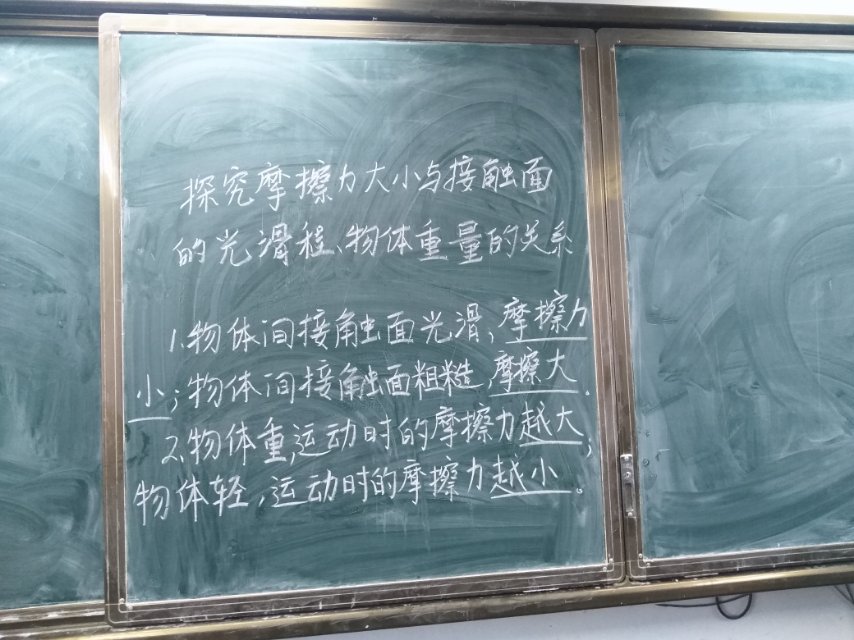 探究摩擦力大小与接触面
的光滑程、物体重量的关系
1.物体间接触面光滑、摩擦力
小;物体间接触面粗糙,摩擦大.
2.物体重,运动时的摩擦力越大;
物体轻,运动时的摩擦力越小。